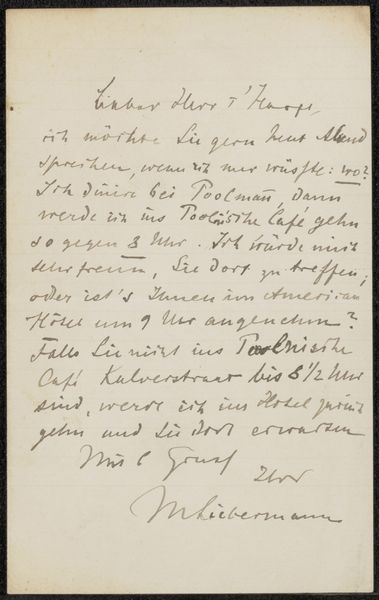 Lieber Herr
ich möchte Sie gern heut Abend
sprechen, wenn ich nur wüsste: wo?
Ich dinire bei Poolman, Dann
werde ich ins Poolnische Café gehn
so gegen 8 Uhr. Ich würde mich
sehr freun, Sie dort zu treffen;
oder ist's Ihnen im American
Hôtel um 9 Uhr angenehm?
Falls Sie nicht ins Poolnische
Café Kalverstraat bis 8 1/2 Uhr
sind, werde ich ins Hotel zurück
gehn und Sie dort erwarten
Mit Gruss
Ihr
MLiebermann